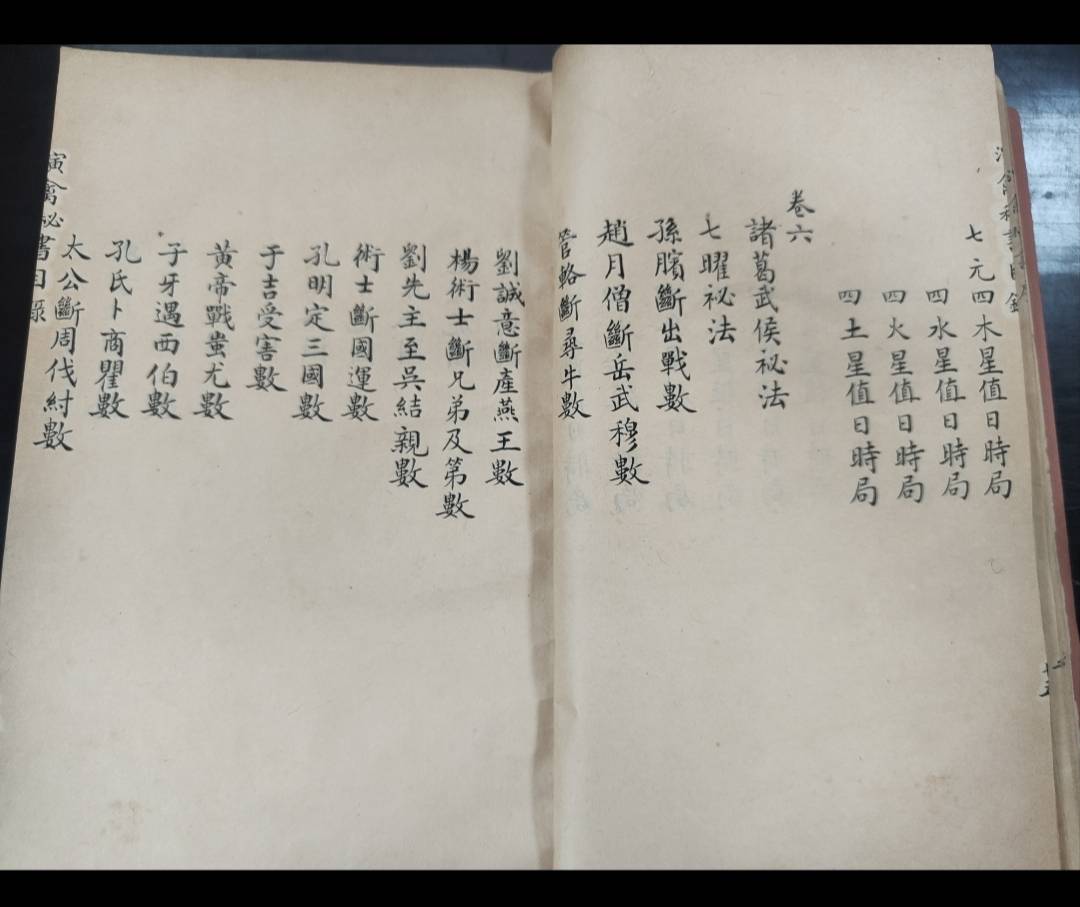 七元四木星值日時局
四水星值日時局
四火星值日時局
四土星值日時局
卷六
諸葛武侯秘法
七曜祕法
孫臏斷出戰數
趙月僧斷岳武穆數
管輅斷尋牛數
劉誠意斷產燕王數
楊術士斷兄弟及第數
劉先主至吳結親數
術士斷國運數
孔明定三國數
于吉受害數
黃帝戰蚩尤數
子牙遇西伯數
孔氏卜商瞿數
太公斷周伐紂數
演禽祕書目錄